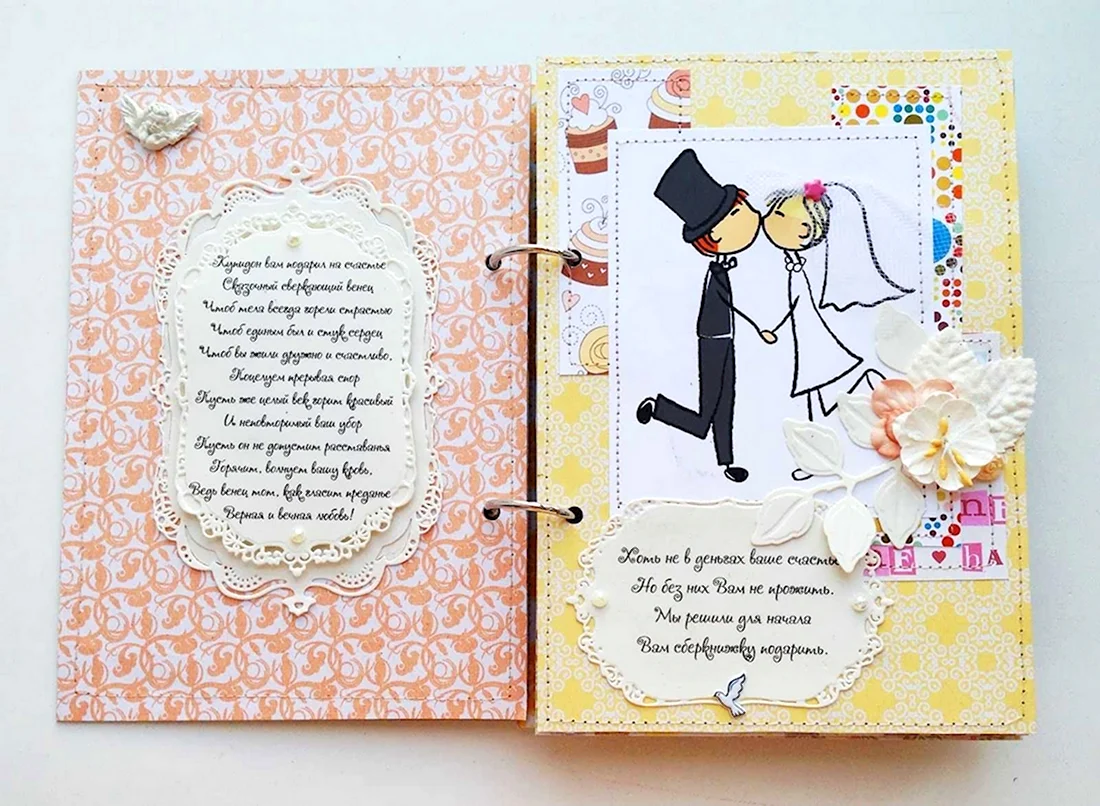 Купидон вам подарил на счастье
Сказочный сверкающий венец
Чтоб тела всегда горели страстью
Чтоб единым был и стук сердец
Чтоб вы жили дружно и счастливо,
Поцелуем прерывая спор
Пусть же целый век горит красивый
И неповторимый ваш убор
Пусть он не допустит расставанья
Горячит, волнует вашу кровь,
Ведь венец тот, как гласит преданье
Верная и вечная любовь!
Хоть не в деньгах ваше счастье
Но без них Вам не прожить.
Мы решили для начала
Вам сберкнижку подарить.
ni
E ha